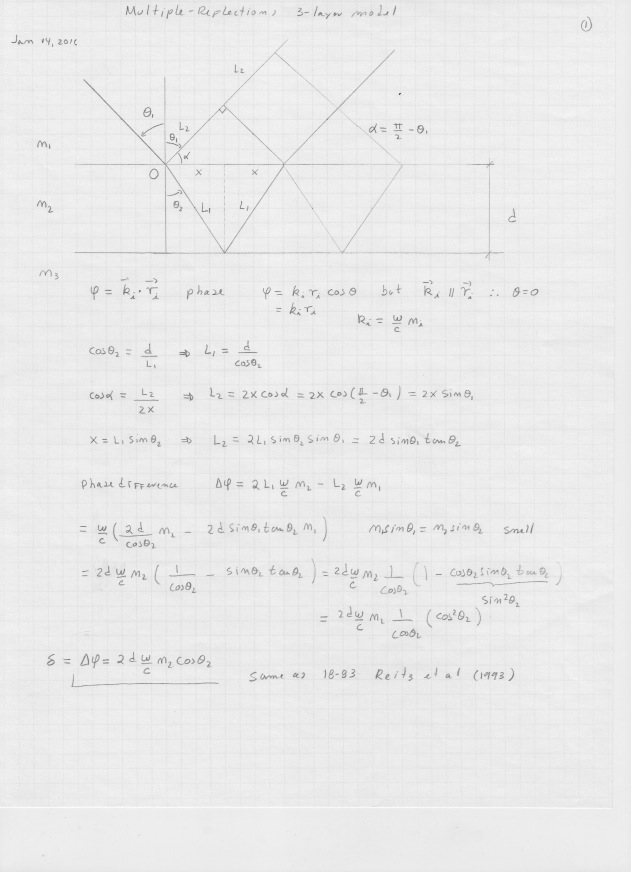 Multiple-Reflections, 3-layer model
(1)
Jan 14, 201
L₂
θ₁ L₂ θ₁ α
α = π/2 - θ₁
n₁
O x x
n₂
θ₂ L₁ L₁ d
n₃
φ = k⃗ᵢ · r⃗ᵢ phase φ = kᵢ rᵢ cosθ but k⃗ᵢ ∥ r⃗ᵢ ∴ θ=0
= kᵢrᵢ kᵢ = ω/c nᵢ
cosθ₂ = d/L₁ ⇒ L₁ = d/cosθ₂
cosα = L₂/2x ⇒ L₂ = 2x cosα = 2x cos(π/2 - θ₁) = 2x sinθ₁
x = L₁ sinθ₂ ⇒ L₂ = 2L₁ sinθ₂ sinθ₁ = 2d sinθ₁ tanθ₂
phase difference Δφ = 2L₁ ω/c n₂ - L₂ ω/c n₁
= ω/c (2d/cosθ₂ n₂ - 2d sinθ₁ tanθ₂ n₁) n₁sinθ₁ = n₂sinθ₂ snell
= 2d ω/c n₂ (1/cosθ₂ - sinθ₂ tanθ₂) = 2d ω/c n₂ 1/cosθ₂ (1 - cosθ₂ sinθ₂ tanθ₂)
sin²θ₂
= 2d ω/c n₂ 1/cosθ₂ (cos²θ₂)
δ = Δφ = 2d ω/c n₂ cosθ₂ same as 18-83 Reitz et al (1993)